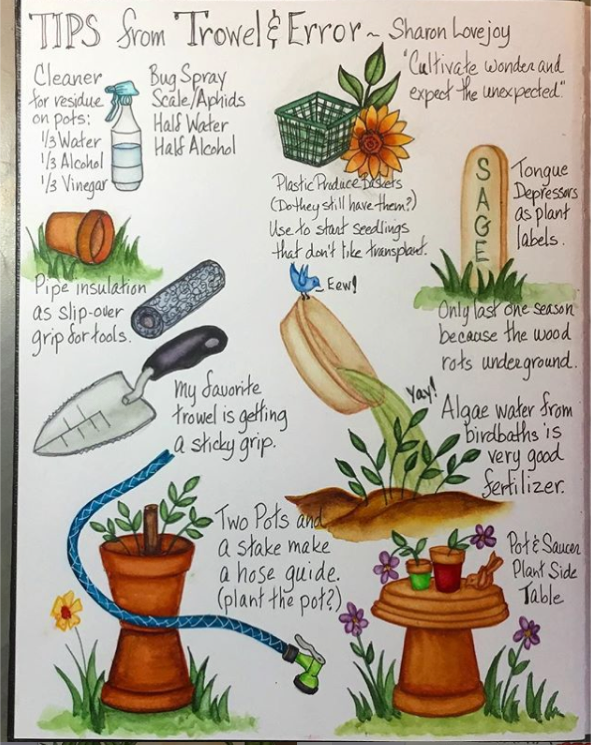 TIPS from Trowel & Error ~ Sharon Lovejoy
"Cultivate wonder and
expect the unexpected."
Cleaner
for residue
on pots:
1/3 Water
1/3 Alcohol
1/3 Vinegar
Bug Spray
Scale/Aphids
Half Water
Half Alcohol
Plastic Produce Baskets
(Do they still have them?)
Use to start seedlings
that don't like transplant.
SAGE
Tongue
Depressors
as plant
labels.
Only last one season
because the wood
rots underground.
Pipe insulation
as slip-over
grip for tools.
My favorite
trowel is getting
a sticky grip.
Eew!
Yay!
Algae water from
birdbaths is
very good
fertilizer.
Two Pots and
a stake make
a hose guide.
(plant the pot?)
Pot & Saucer
Plant Side
Table